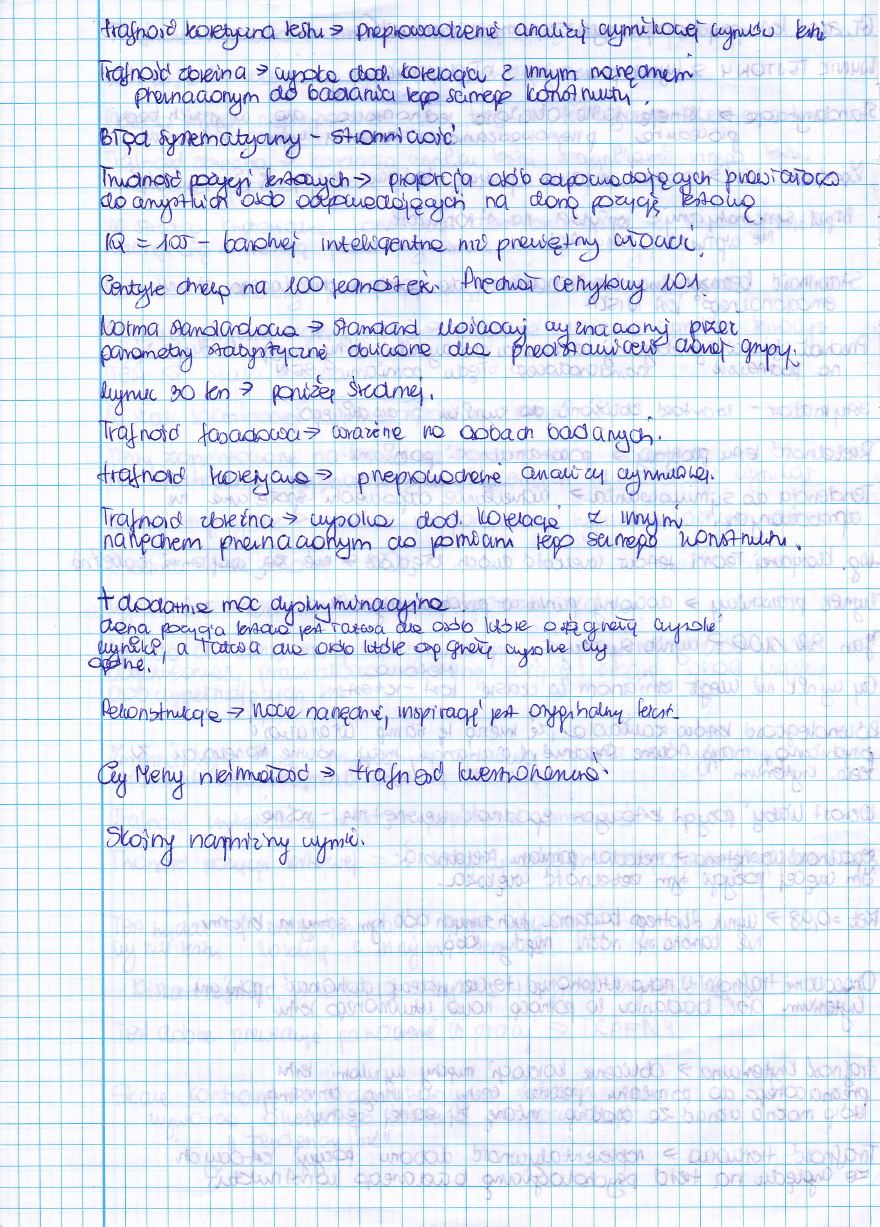 trafność teoretyczna testu → przeprowadzenie analizy czynnikowej wyników testu
Trafność zbieżna → wysoka dod. korelacja z innym narzędziem
przeznaczonym do badania tego samego konstruktu.
Błąd systematyczny - stronniczość
Trudność pozycji testowych → proporcja osób odpowiadających prawidłowo
do wszystkich osób odpowiadających na daną pozycję testową.
IQ = 105 - bardziej inteligentna niż przeciętny członek
Centyle dzielą na 100 jednostek. Przedział centylowy 101.
Norma standardowa → standard ilościowy wyznaczony przez
parametry statystyczne obliczone dla przedstawicieli danej grupy.
Wynik 30 ten → poniżej średniej.
Trafność fasadowa → wrażenie na osobach badanych.
trafność teoretyczna → przeprowadzenie analizy czynnikowej.
Trafność zbieżna → wysoka dod. korelacja z innym
narzędziem przeznaczonym do pomiaru tego samego konstruktu.
+ dodatnia moc dyskryminacyjna
dana pozycja testowa jest łatwa dla osób które osiągnęły wysokie
wyniki, a łatwa dla osób które osiągnęły wysokie wy
ogólne.
Rekonstrukcja → nowe narzędzie, inspiracją jest oryginalny tekst
Czy mierzy → trafność
Skośny wynik.